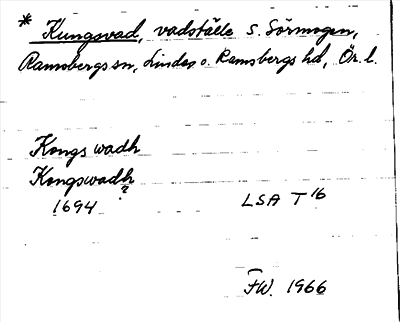 * Kungsvad, vadställe S. Sörmogen,
Ramsbergs sn, Lindes o. Ramsbergs hd, Ör. l.
Kongs wadh
Kongswadh
?
1694
LSA T 16
FW. 1966